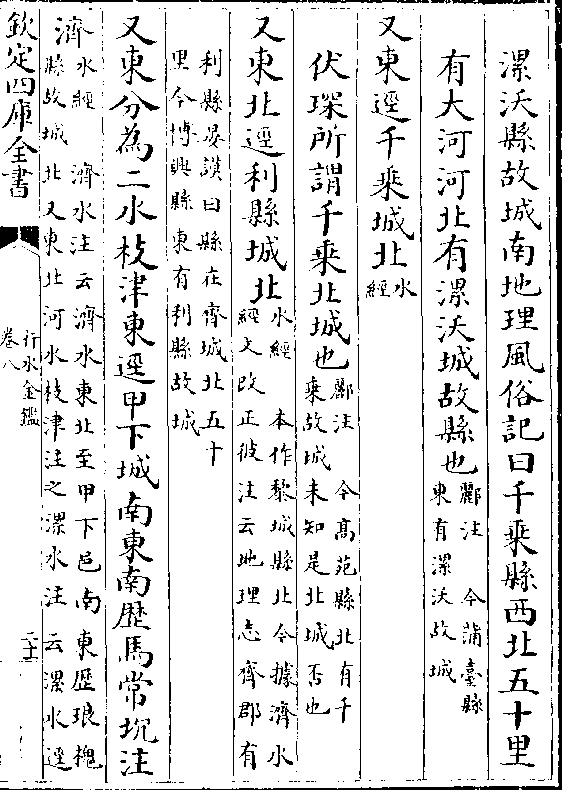 漯沃縣故城南地理風俗記曰千乗縣西北五十里
有大河河北有漯沃城故縣也
酈注　今蒲臺縣
東有漯沃故城
又東逕千乗城北
水
經
伏琛所謂千乗北城也
酈注　今高苑縣北有千
乗故城未知是北城否也
又東北逕利縣城北
水經　本作黎城縣北今據濟水
經文改正彼注云地理志齊郡有
利縣晏謨曰縣在齊城北五十
里今博興縣東有利縣故城
又東分為二水枝津東逕甲下城南東南歴馬常坈注
濟
水經　濟水注云濟水東北至甲下邑南東歴琅槐
縣故城北又東北河水枝津注之漯水注云漯水逕
欽定四庫全書
行水金鑑
卷八
二十